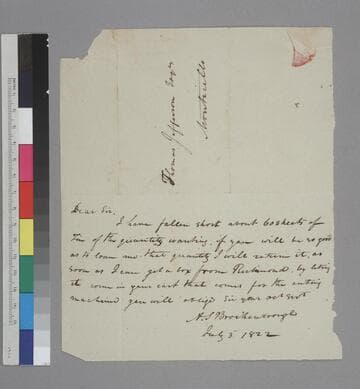 Thomas Jefferson Esqr
Monticello
Dear Sir,
I have fallen short about 60 sheets of
Tin of the quantity wanting. if you will be so good
as to loan me that quantity I will return it, as
soon as I can get a box from Richmond. by letting
it come in your cart that comes for the cutting
machine you will oblige Sir your obt Sevt
A. S. Brockenbrough
July 5 1822